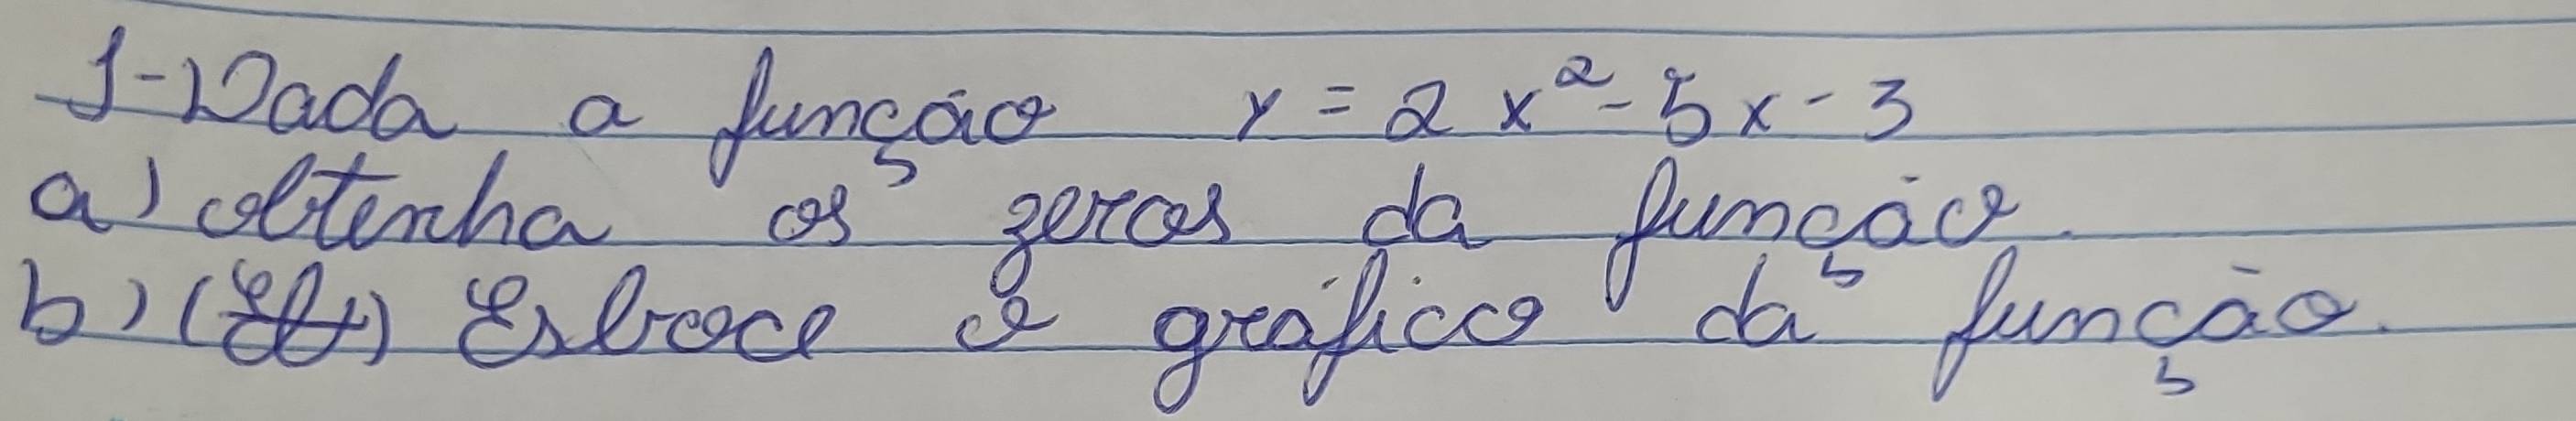 1-Dada a função y = 2x²-5x-3
a) obtenha os zeros da função.
b) Esboce o gráfico da função.